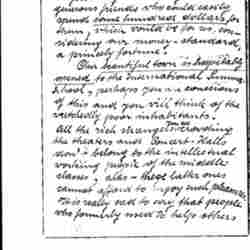 generous friends who could easily
spend some hundred dollars for
them, which would be for us, con-
sidering our money-standard,
a princely fortune.
Our beautiful town is hospitably
opened to the International
School, perhaps you are conscious
of this and you will think of the
poor inhabitants.
All the rich strangers crowding
the theaters and Concert-Halls
don't belong to the intellectual
working people of the middle
classes, alas - these latter ones
cannot afford to enjoy such pleasures.
It is really sad to see that people
who formerly used to help others